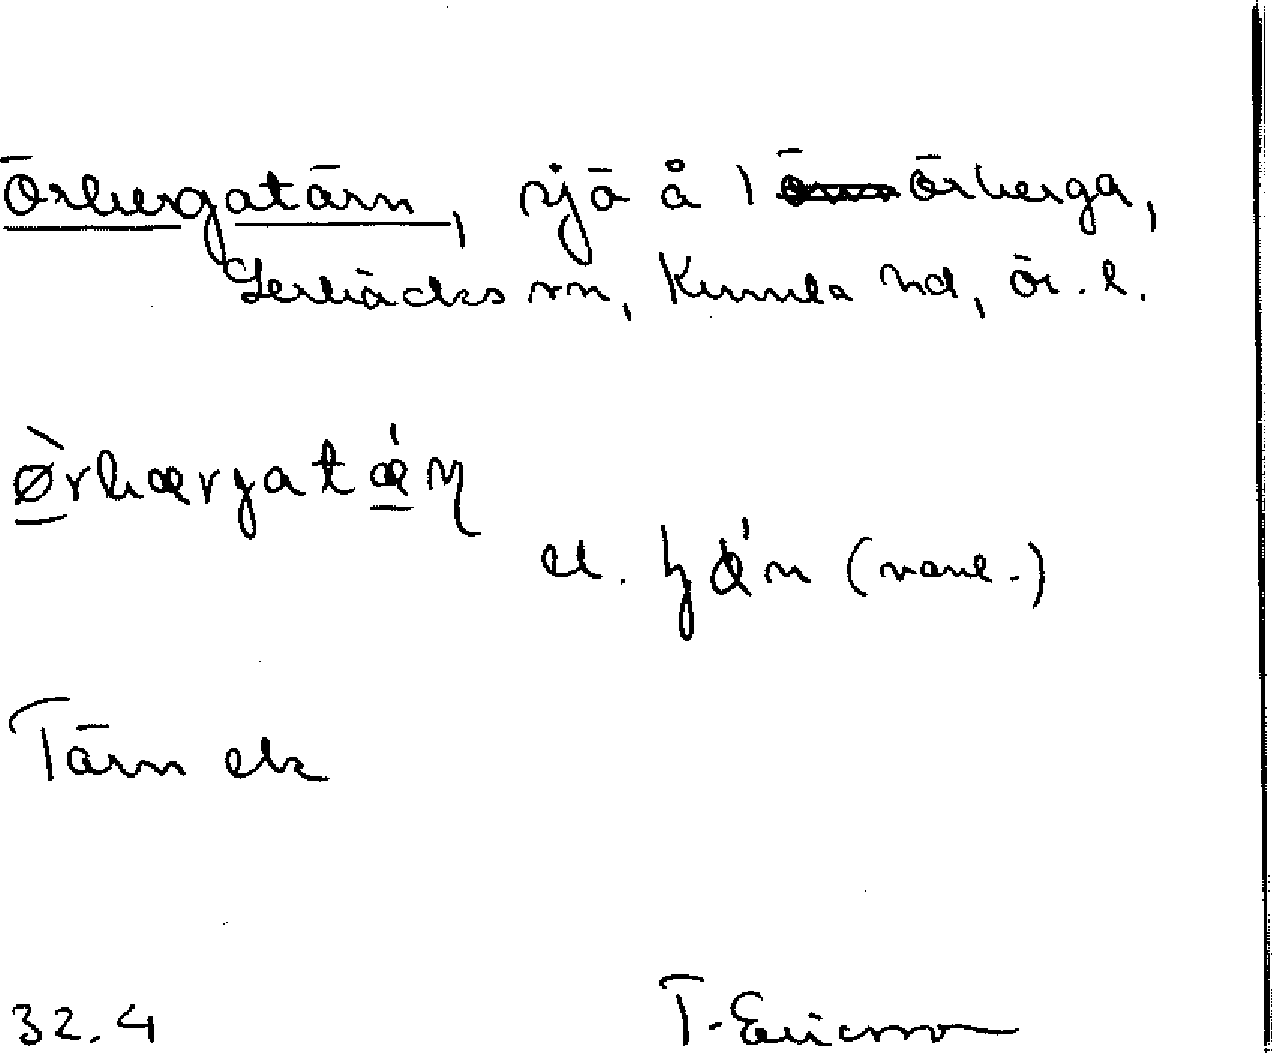 Örbergatärn, sjö å 1 Örberga,
Lerbäcks sn, Kumla hd, Ör. l.
ørbærgatǽn
el. (vanl.)
Tärn ek
32.4
T. Ericsson